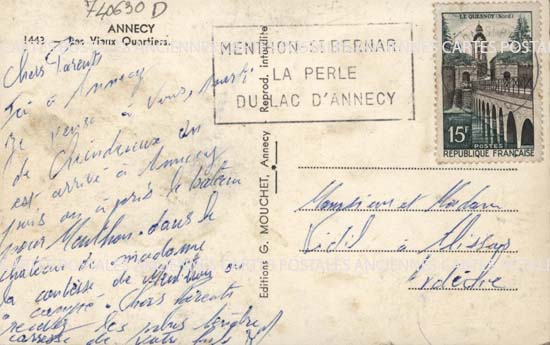 740630 D
ANNECY
1443 – Des Vieux Quartiers.
Chers Parents
Ici à Annecy
je pense à vous,
de
est arrivé à Annecy
puis on a pris le bateau
pour Menthon. dans le
chateau de madame
la comtesse de Menthon on
a campé. Chers Parents
recevez les plus
caresse de votre fils
Editions G. MOUCHET, Annecy Reprod. interdite
MENTHON-ST BERNARD
LA PERLE
DU LAC D'ANNECY
LE QUESNOY (Nord)
15F
POSTES
RÉPUBLIQUE FRANÇAISE
Monsieur et Madame
Vidil à
Ardèche